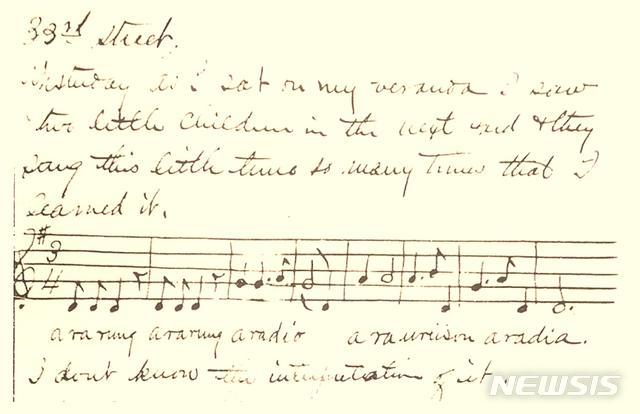 33rd street.
Yesterday as I sat on my veranda I saw
two little children in the next yard & they
sang this little tune so many times that I
learned it.
3
4
a ra rung a ra rung a ra dio a ra urcison a ra dia.
I dont know the interpretation of it.
NEWSIS